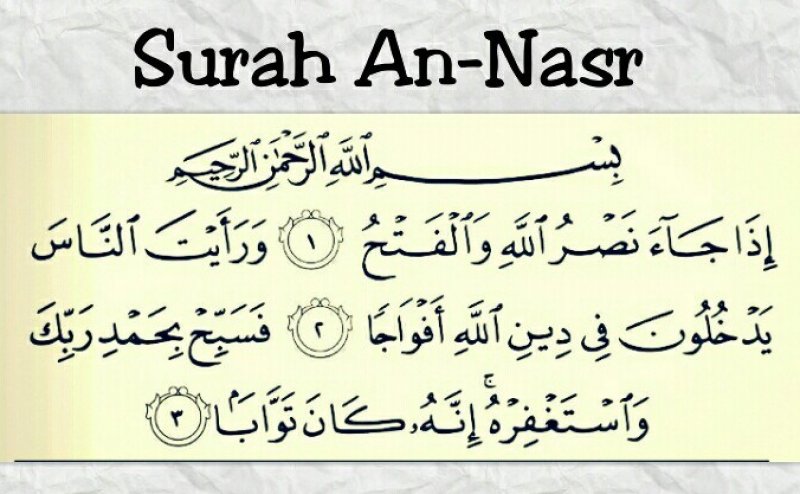 Surah An-Nasr
بِسْمِ ٱللَّهِ ٱلرَّحْمَٰنِ ٱلرَّحِيمِ
إِذَا جَآءَ نَصْرُ ٱللَّهِ وَٱلْفَتْحُ ١ وَرَأَيْتَ ٱلنَّاسَ
يَدْخُلُونَ فِى دِينِ ٱللَّهِ أَفْوَاجًا ٢ فَسَبِّحْ بِحَمْدِ رَبِّكَ
وَٱسْتَغْفِرْهُ ۚ إِنَّهُۥ كَانَ تَوَّابًۢا ٣